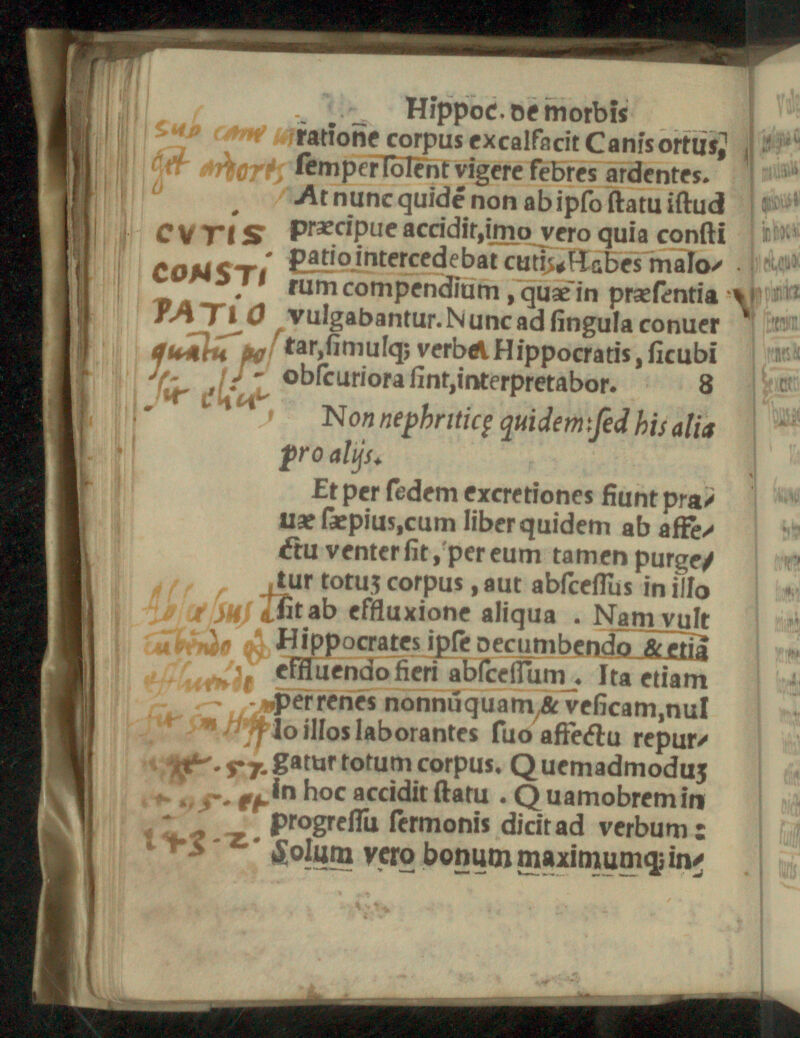 Hippoc. de morbis
ratione corpus excalfacit Canis ortus,
semper solent vigere febres ardentes.
At nunc quidē non ab ipso statu istud
CVTIS
præcipue accidit, imo vero quia consti
CONSTI
patio intercedebat cutis. Habes malo/
rum compendium, quæ in præsentia
PATIO
vulgabantur. Nunc ad singula conuer
tar, simulq; verba Hippocratis, sicubi
obscuriora sint, interpretabor. 8
Non nephriticę quidem: sed his alia
pro alijs.
Et per sedem excretiones fiunt pra/
uæ sæpius, cum liber quidem ab affe/
ctu venter sit, per eum tamen purge/
tur totuʒ corpus, aut abscessus in illo
fit ab effluxione aliqua. Nam vult
Hippocrates ipse decumbendo & etiā
effluendo fieri abscessum. Ita etiam
per renes nonnūquam, & vesicam, nul
lo illos laborantes suo affectu repur/
gatur totum corpus. Quemadmoduʒ
in hoc accidit statu. Quamobrem in
progressu sermonis dicit ad verbum:
Solum vero bonum maximumq; in/